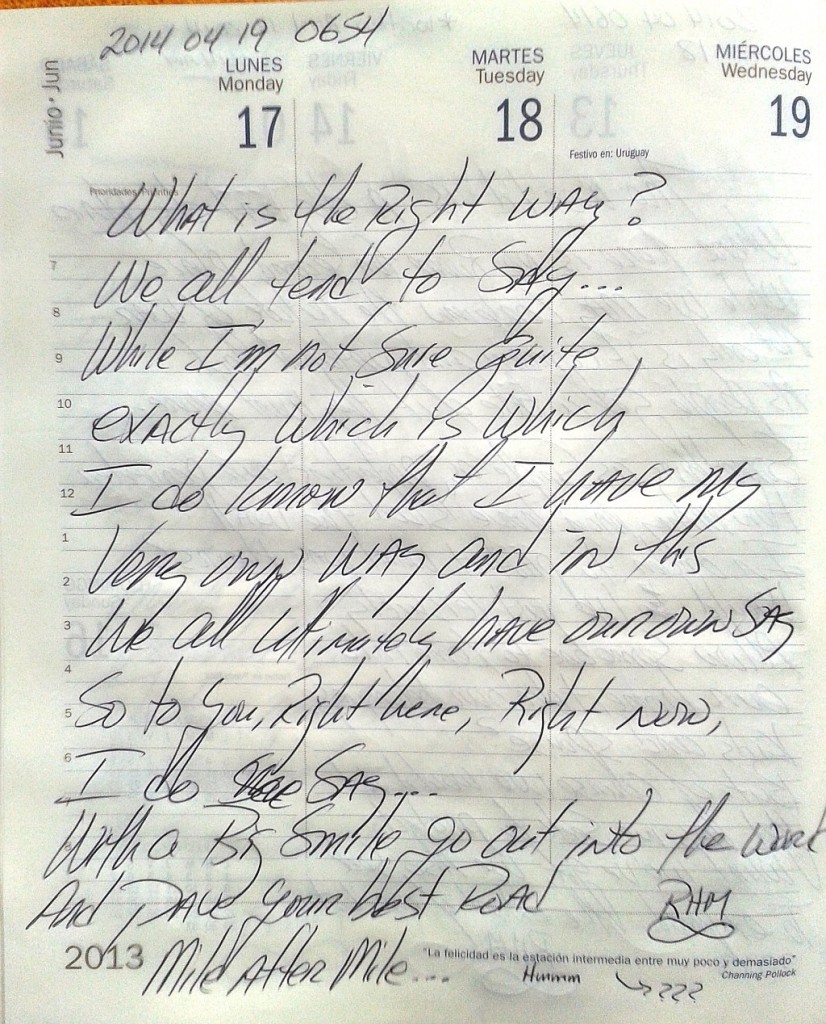 2014 04 19 0654
Junio • Jun
LUNES
Monday
17
MARTES
Tuesday
18
MIÉRCOLES
Wednesday
19
Festivo en: Uruguay
Prioridades/Priorities
What is the Right WAy?
We all tend to SAy...
While I'm not Sure Quite
exActly which is which
I do know that I HAVE my
Very own WAy and in this
We all ultimately HAVE our own SAy
So to you, Right here, Right Now,
I do SAy...
With a Big Smile go out into the World
And PAVE your best ROAD
RHM
Mile After Mile...
7
8
9
10
11
12
1
2
3
4
5
6
2013
"La felicidad es la estación intermedia entre muy poco y demasiado"
Channing Pollock
Hummm
???